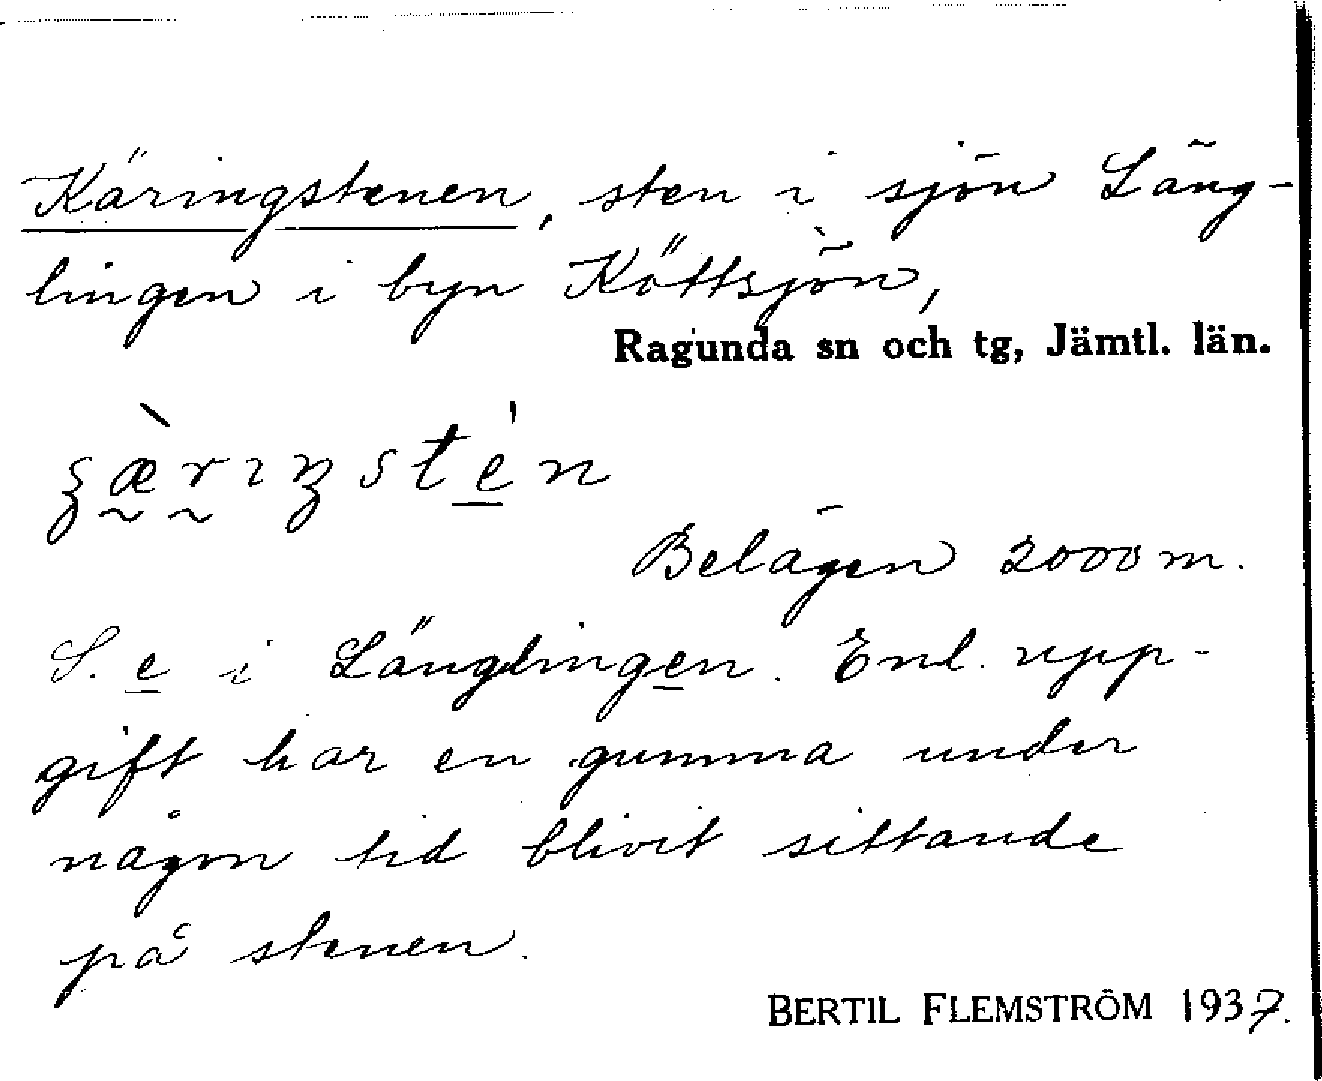 Käringstenen, sten i sjön Läng-
lingen i byn Köttsjön,
Ragunda sn och tg, Jämtl. län.
Belägen 2000 m.
S. e i Länglingen. Enl. upp-
gift har en gumma under
någon tid blivit sittande
på stenen.
BERTIL FLEMSTRÖM 1937.